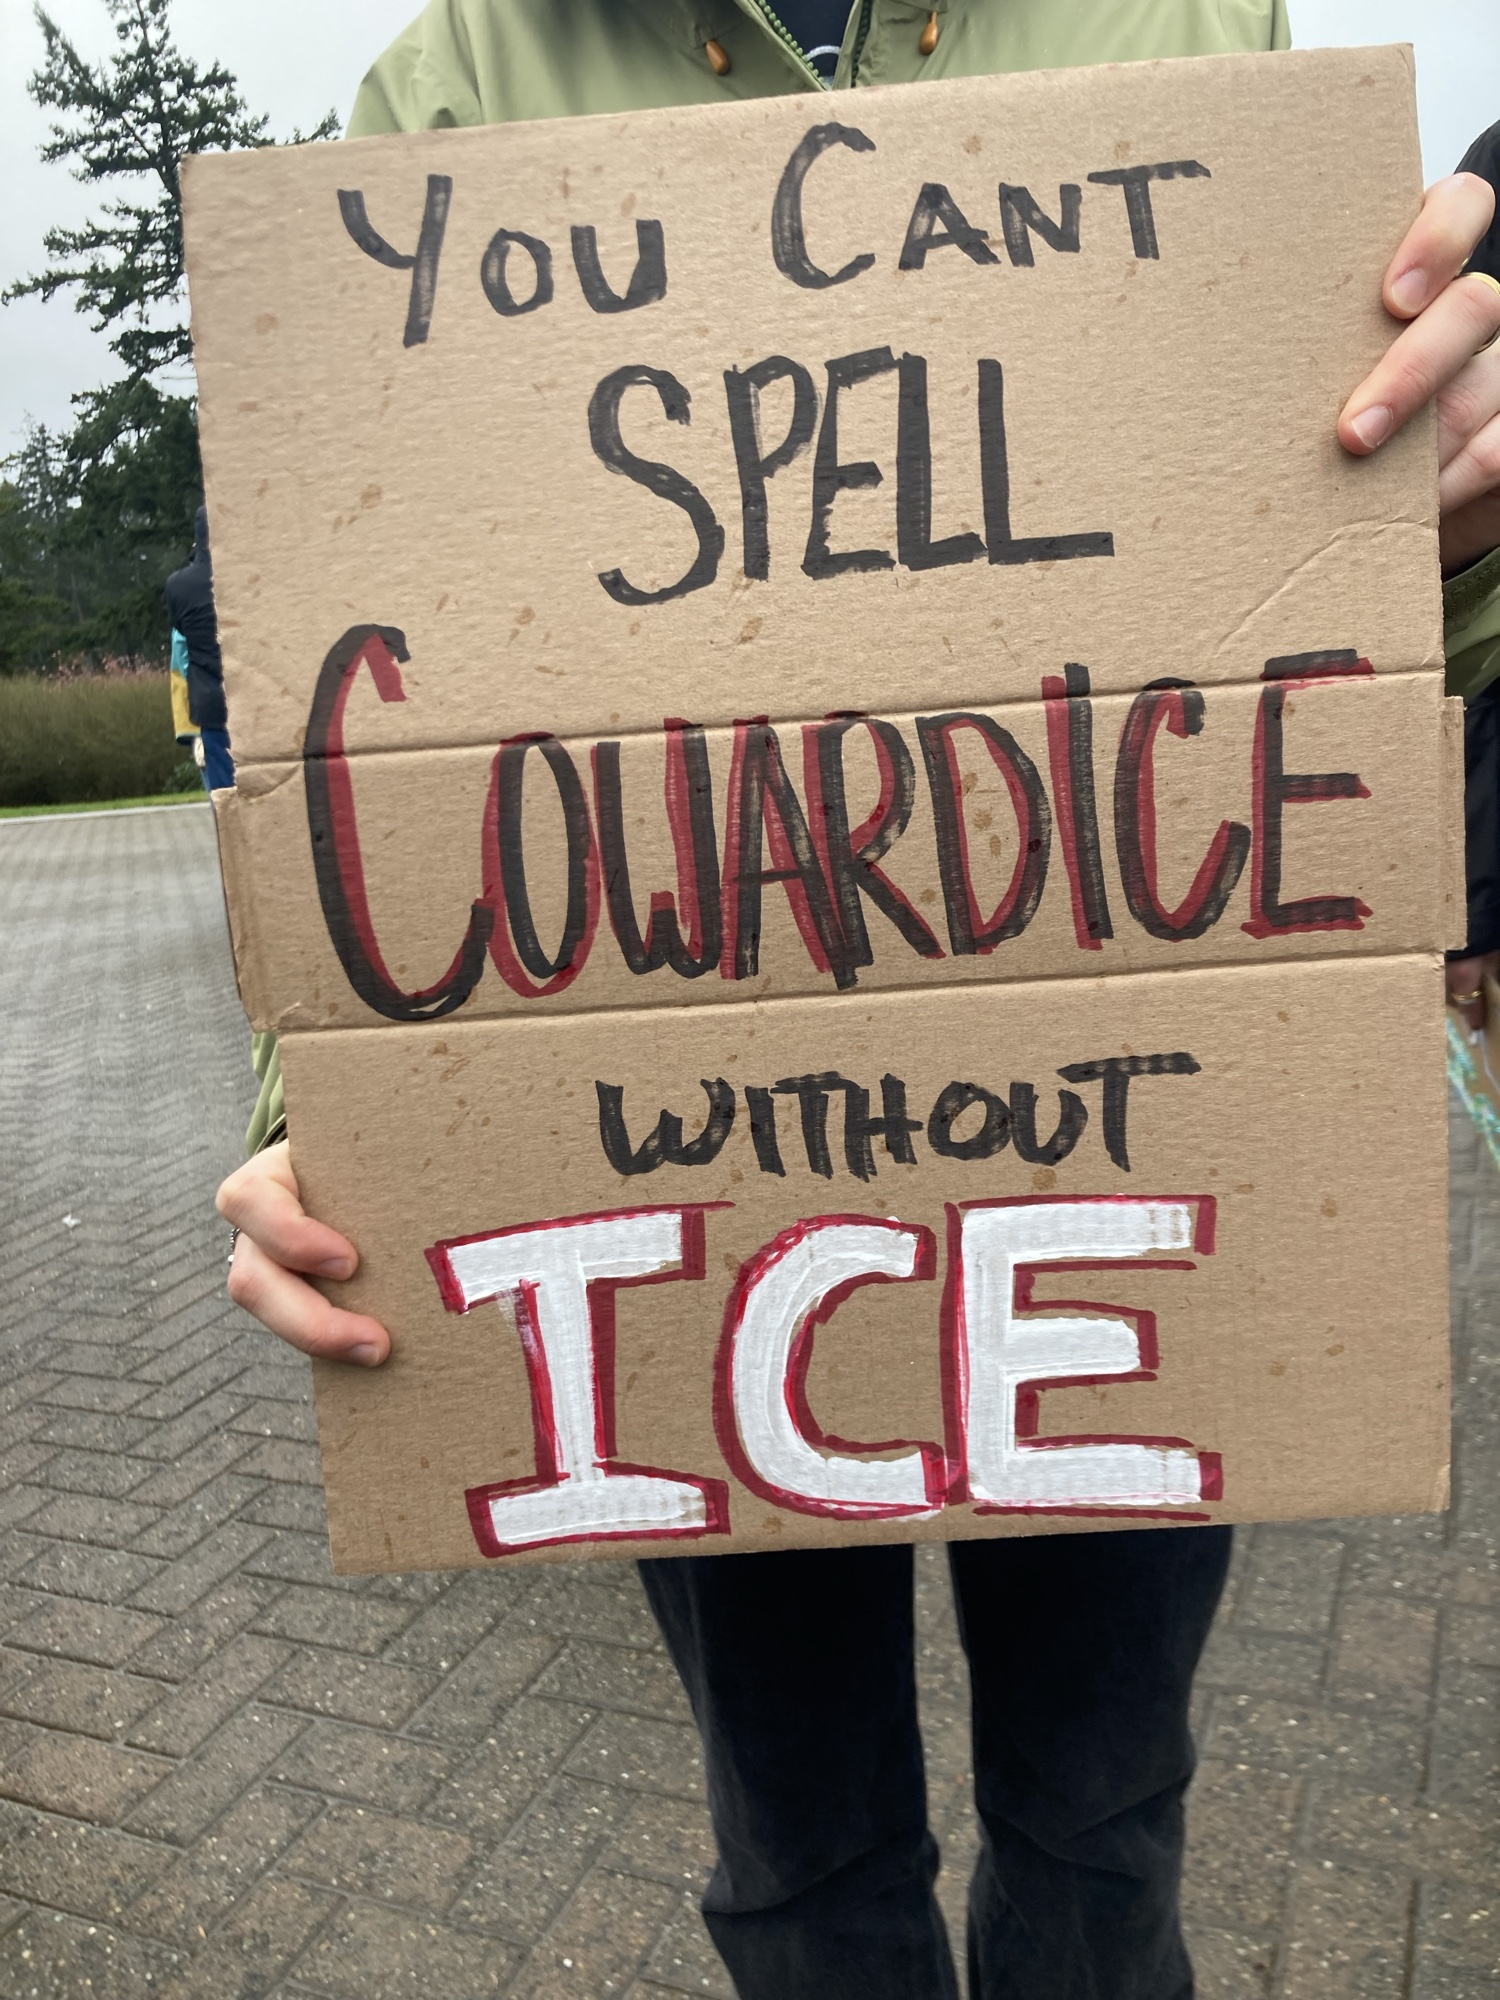 You CANT
SPELL
COWARDICE
WITHOUT
ICE